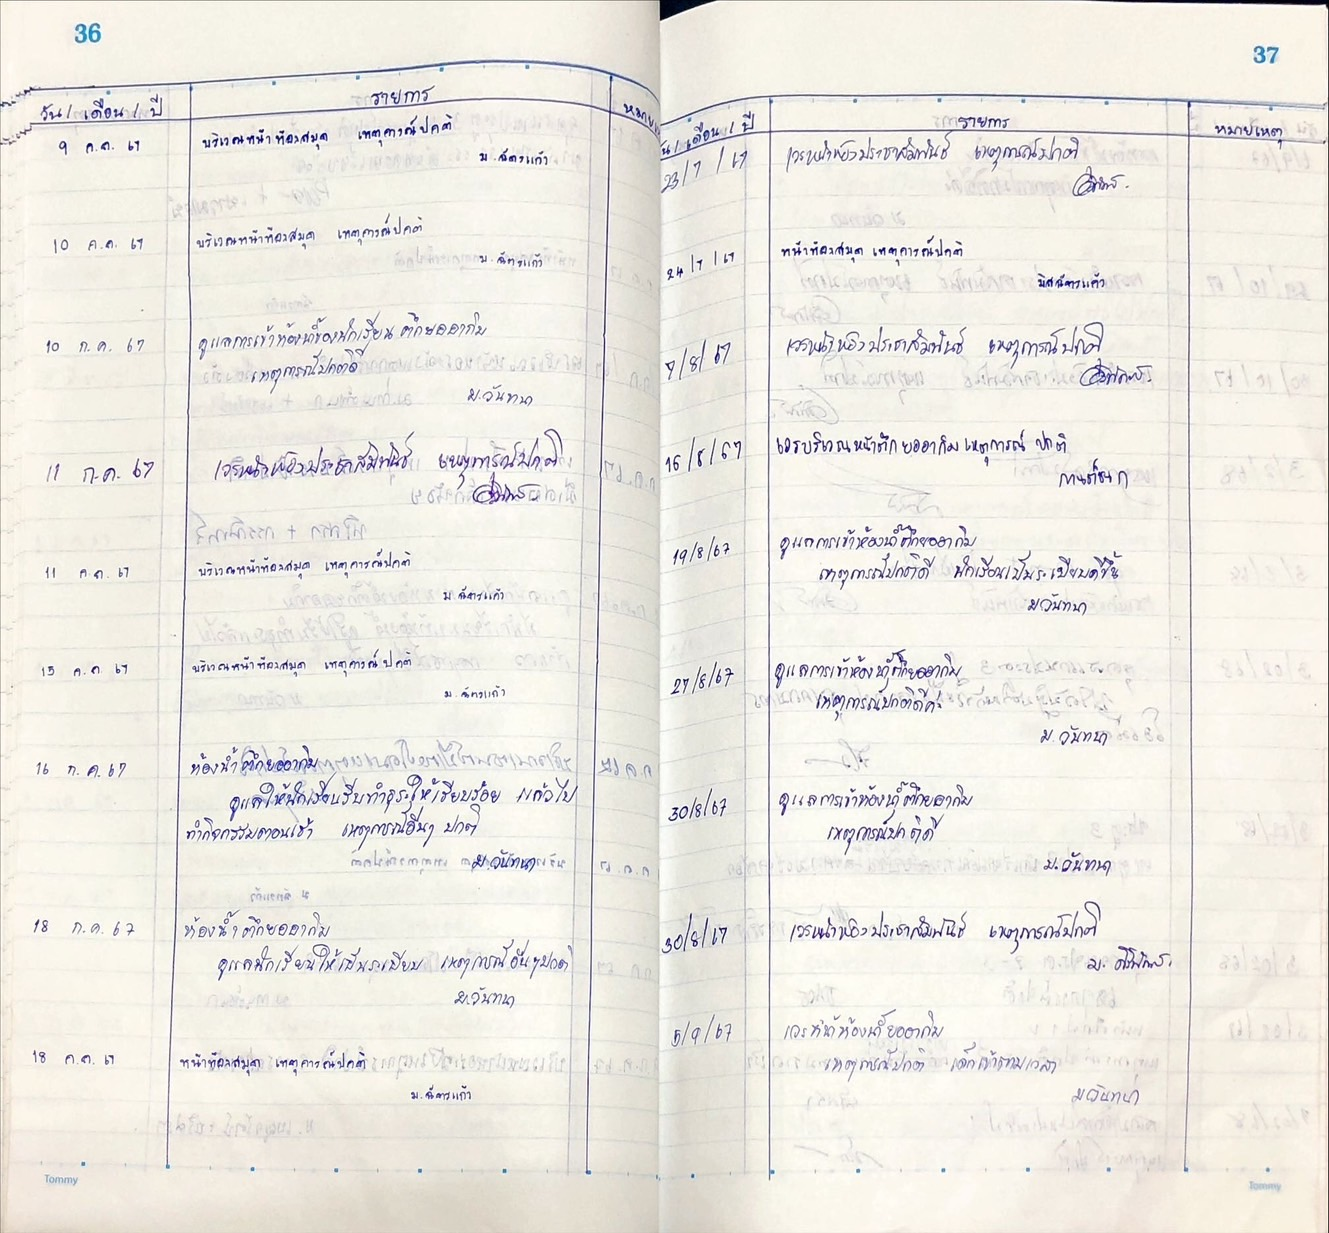 36
วัน / เดือน / ปี รายการ
9 ก.ค. 67 บริเวณหน้าห้องสมุด เหตุการณ์ปกติ
ม.ฉัตรแก้ว
10 ก.ค. 67 บริเวณหน้าห้องสมุด เหตุการณ์ปกติ
ม.ฉัตรแก้ว
10 ก.ค. 67 ดูแลการเข้าห้องน้ำของนักเรียน ตึกยออากิม
เหตุการณ์ปกติดี
ม.วันทนา
11 ก.ค. 67 เวรหน้าห้องประชาสัมพันธ์ เหตุการณ์ปกติ
11 ก.ค. 67 บริเวณหน้าห้องสมุด เหตุการณ์ปกติ
ม.ฉัตรแก้ว
15 ก.ค. 67 บริเวณหน้าห้องสมุด เหตุการณ์ปกติ
ม.ฉัตรแก้ว
16 ก.ค. 67 ห้องน้ำตึกยออากิม
ดูแลให้นักเรียนรีบทำธุระให้เรียบร้อย แล้วไป
ทำกิจกรรมตอนเช้า เหตุการณ์อื่นๆ ปกติ
ม.วันทนา
18 ก.ค. 67 ห้องน้ำตึกยออากิม
ดูแลนักเรียนให้เป็นระเบียบ เหตุการณ์อื่นๆ ปกติ
ม.วันทนา
18 ก.ค. 67 หน้าห้องสมุด เหตุการณ์ปกติ
ม.ฉัตรแก้ว
Tommy
37
วัน / เดือน / ปี รายการ หมายเหตุ
23/7/67 เวรหน้าห้องประชาสัมพันธ์ เหตุการณ์ปกติ
24/7/67 หน้าห้องสมุด เหตุการณ์ปกติ
มิสฉัตรแก้ว
7/8/67 เวรหน้าห้องประชาสัมพันธ์ เหตุการณ์ปกติ
16/8/67 เวรบริเวณหน้าตึกยออากิม เหตุการณ์ ปกติ
19/8/67 ดูแลการเข้าห้องน้ำตึกยออากิม
เหตุการณ์ปกติดี นักเรียนเป็นระเบียบดีขึ้น
ม.วันทนา
27/8/67 ดูแลการเข้าห้องน้ำตึกยออากิม
เหตุการณ์ปกติดีค่ะ
ม.วันทนา
30/8/67 ดูแลการเข้าห้องน้ำตึกยออากิม
เหตุการณ์ปกติดี
ม.วันทนา
30/8/67 เวรหน้าห้องประชาสัมพันธ์ เหตุการณ์ปกติ
5/9/67 เวรหน้าห้องน้ำยออากิม
เหตุการณ์ปกติ เด็กเข้าตามเวลา
ม.วันทนา
Tommy